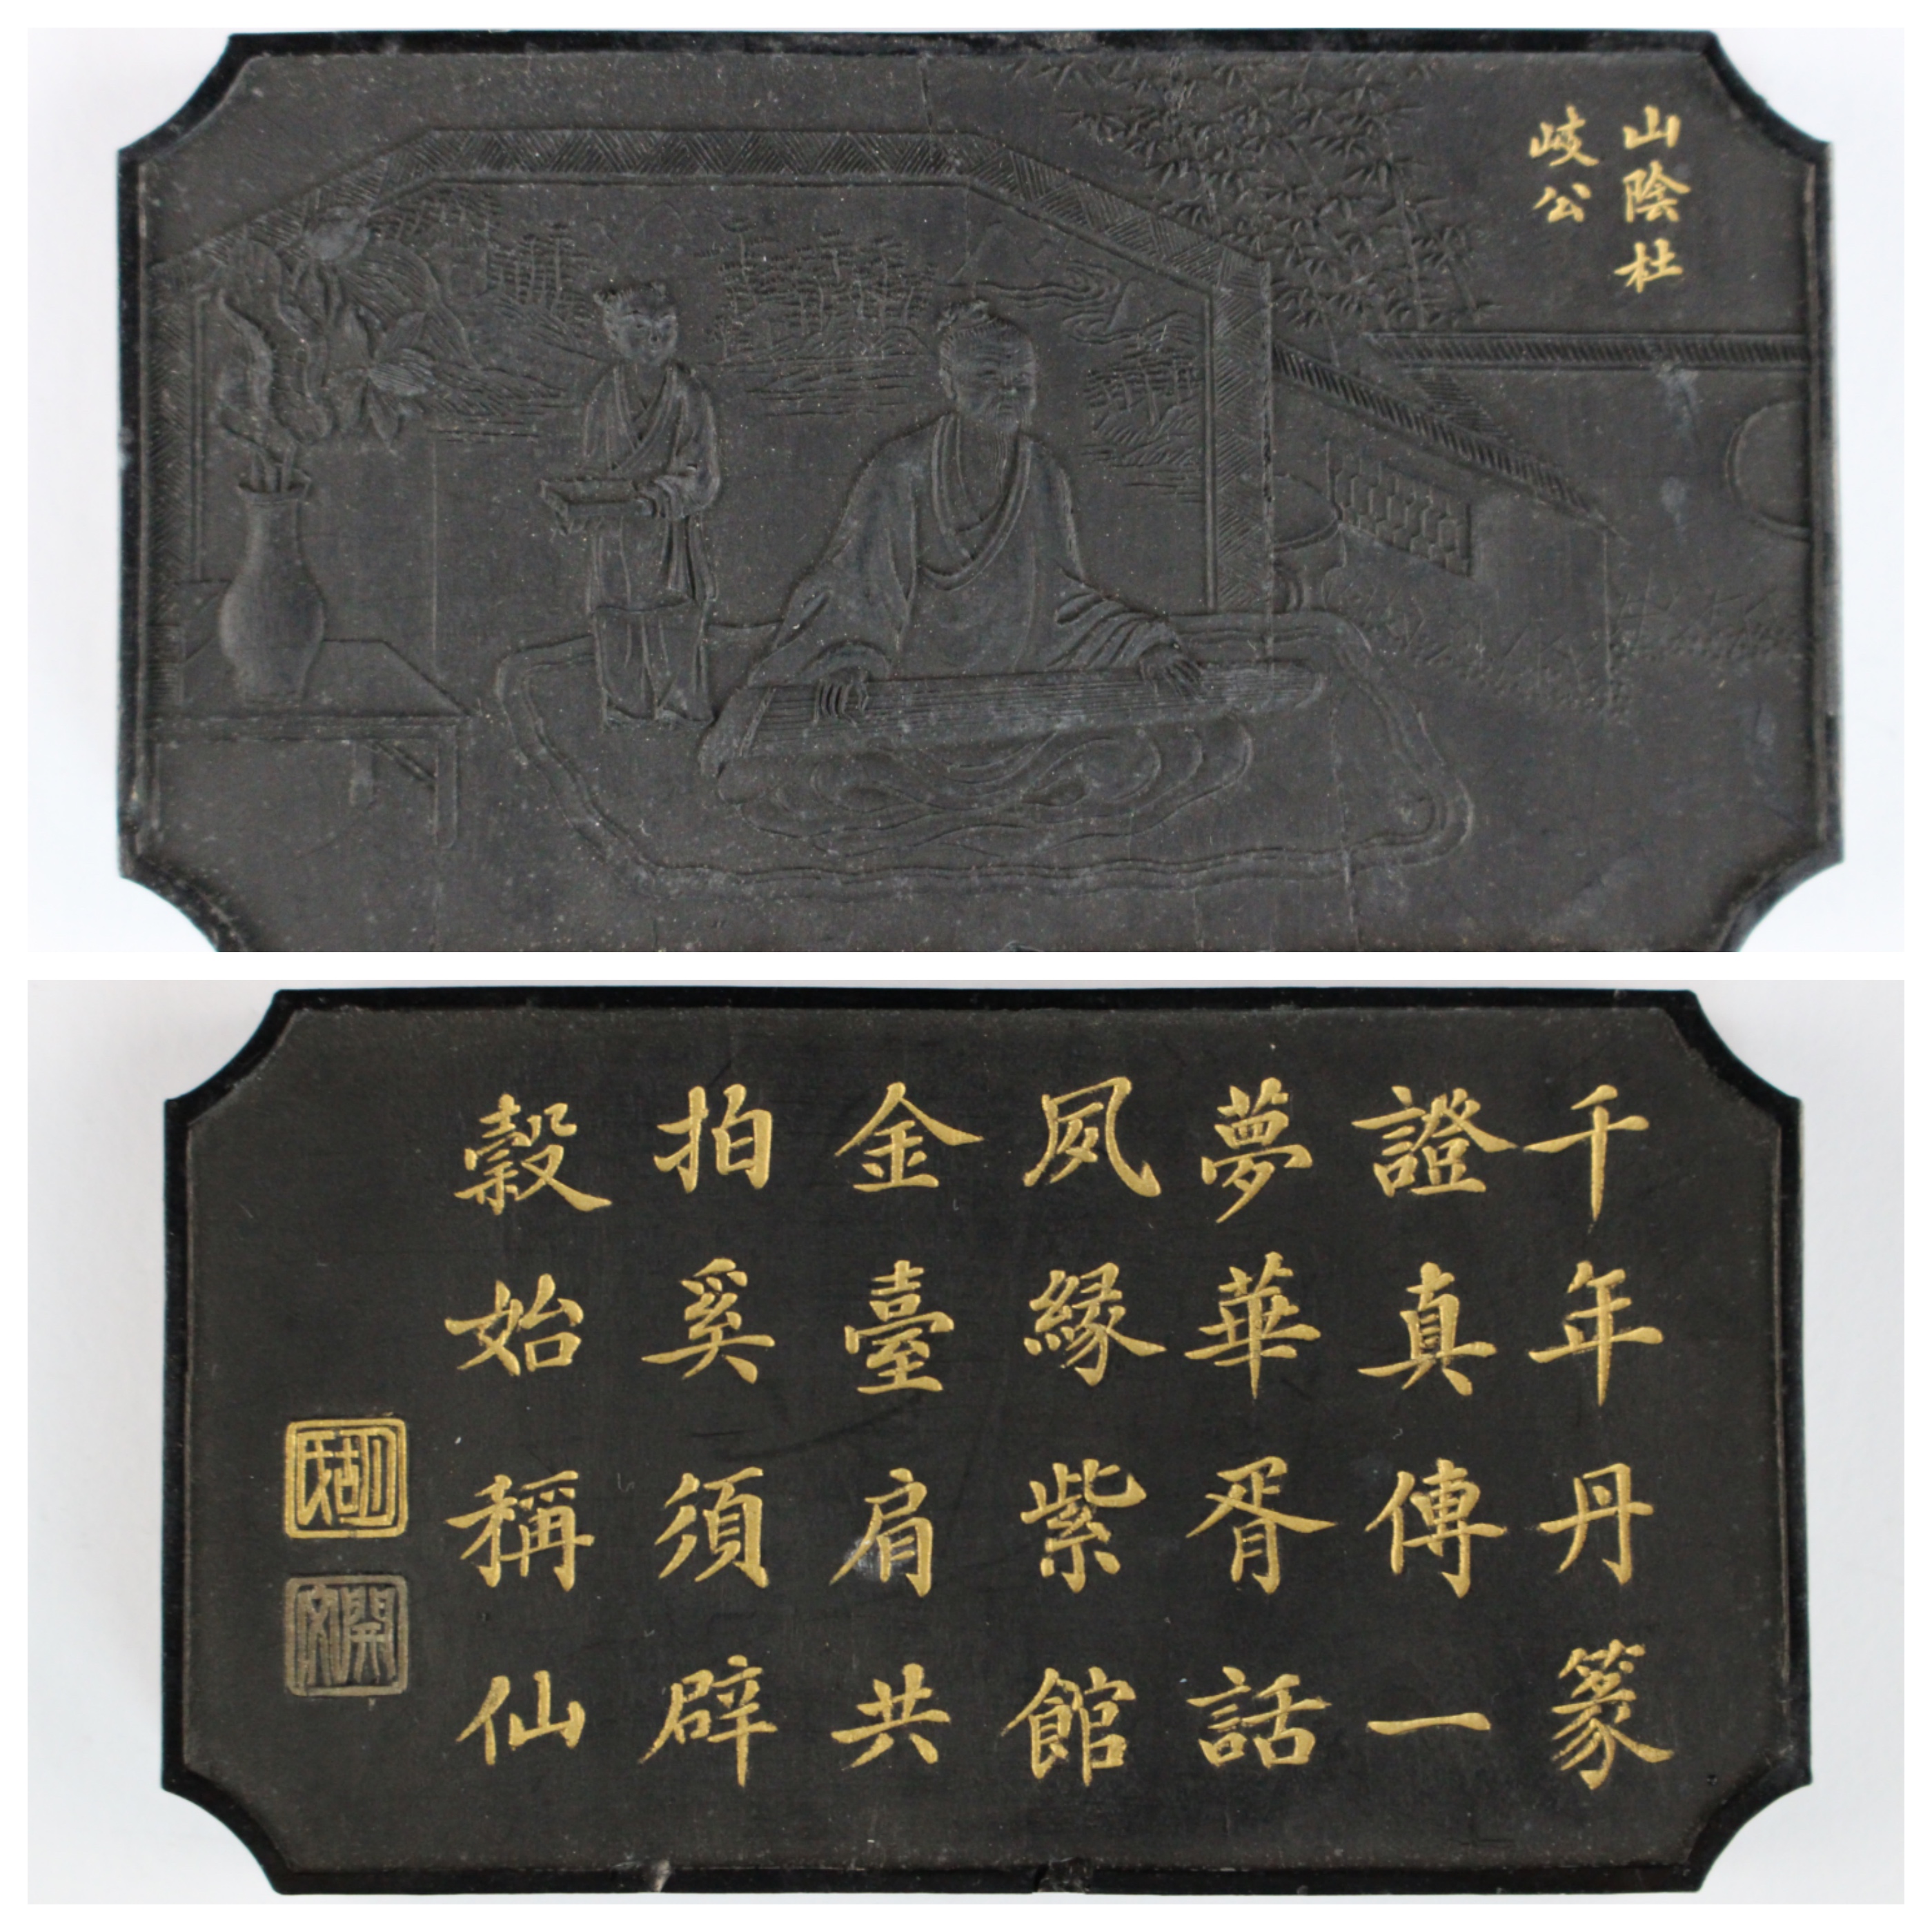 山陰杜
岐公
千年丹篆
證真傳一
夢華胥話
夙緣紫館
金臺肩共
拍奚須辟
穀始稱仙
胡氏
開文